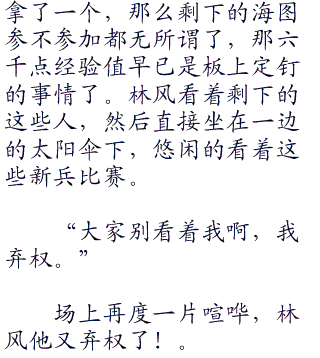 拿了一个，那么剩下的海图
参不参加都无所谓了，那六
千点经验值早已是板上定钉
的事情了。林风看着剩下的
这些人，然后直接坐在一边
的太阳伞下，悠闲的看着这
些新兵比赛。
“大家别看着我啊，我
弃权。”
场上再度一片喧哗，林
风他又弃权了！。